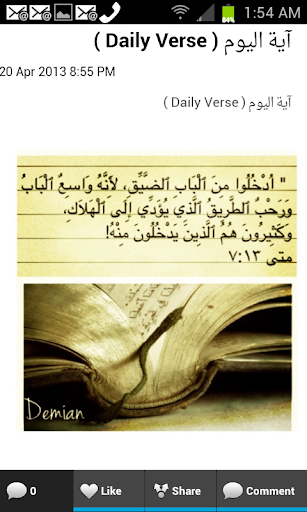 1:54 AM
آية اليوم ( Daily Verse )
20 Apr 2013 8:55 PM
آية اليوم ( Daily Verse )
" اُدْخُلُوا مِنَ ٱلْبَابِ ٱلضَّيِّقِ، لِأَنَّهُ وَاسِعٌ ٱلْبَابُ
وَرَحْبٌ ٱلطَّرِيقُ ٱلَّذِي يُؤَدِّي إِلَى ٱلْهَلَاكِ،
وَكَثِيرُونَ هُمُ ٱلَّذِينَ يَدْخُلُونَ مِنْهُ!
متى ٧:١٣
Demian
0 Like Share Comment